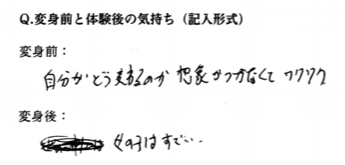 Q.変身前と体験後の気持ち（記入形式）
変身前：
自分がどう変わるのか 想像がつかなくて ワクワク
変身後：
女の子はすごい…